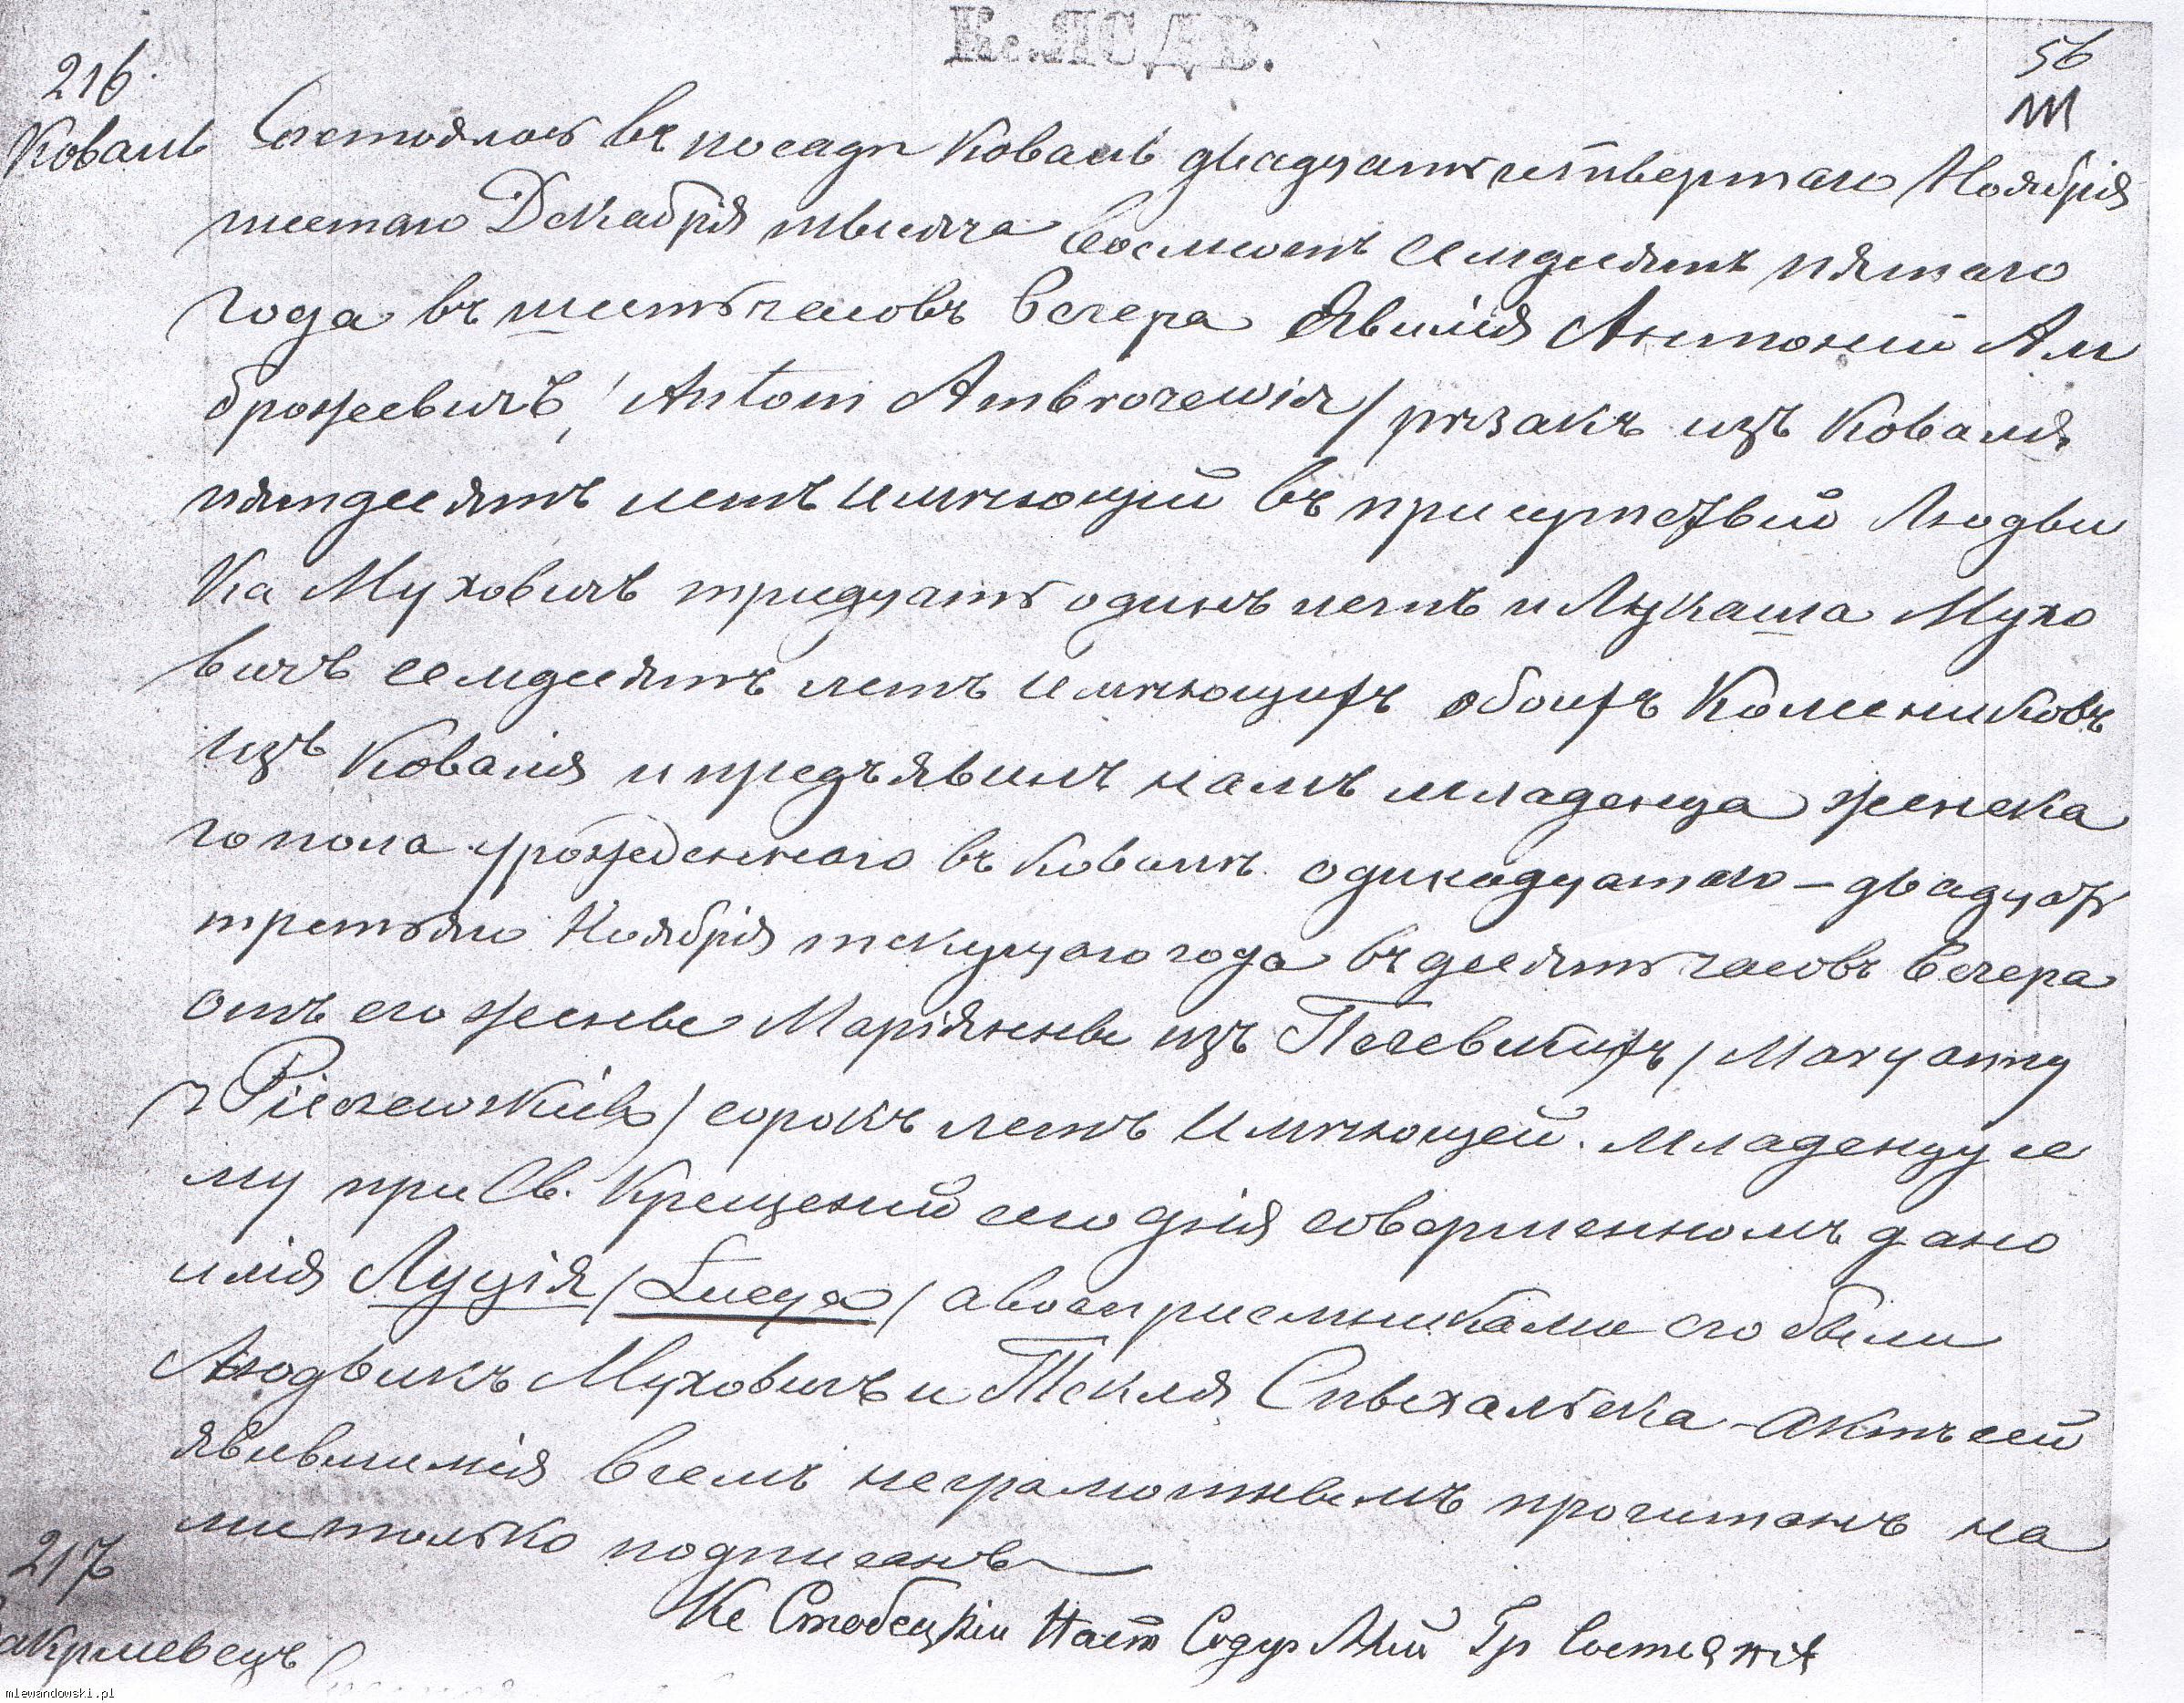 Кс. Я С Д В.
56
111
216
Коваль
Состоялось въ посадѣ Коваль двадцать четвертаго Ноября
шестаго Декабря тысяча восемсотъ семдесятъ пятаго
года въ шесть часовъ вечера Явился Антоній Ам
брожевичъ, /Antoni Ambrożewicz/ рѣзакъ изъ Коваля
пятдесятъ летъ имѣющій въ присутствій Людви
ка Муховичъ тридцать одинъ летъ и Лукаша Мухо
вичъ семдесятъ летъ имѣющихъ обоихъ Коменниковъ
изъ Коваля и предъявилъ намъ младенца женска
го пола урожденнаго въ Ковалѣ одинадцатаго – двадцать
третьяго Ноября текущаго года въ десять часовъ вечера
отъ его жены Маріянны изъ Печевскихъ /Maryanny
z Pieczewskich/ сорокъ летъ имѣющей. Младенцу се
му при Св. Крещеній сего дня совершенномъ дано
имя Луція /Łucya/ а воспріемниками его были
Людвикъ Муховичъ и Текля Спыхальска – Актъ сей
явившимся всемъ неграмотнымъ прочитанъ на
ми только подписанъ
Кс Стобецкій Наст Содер Акты Гр Состоянія
217
акршевецъ
mlewandowski.pl